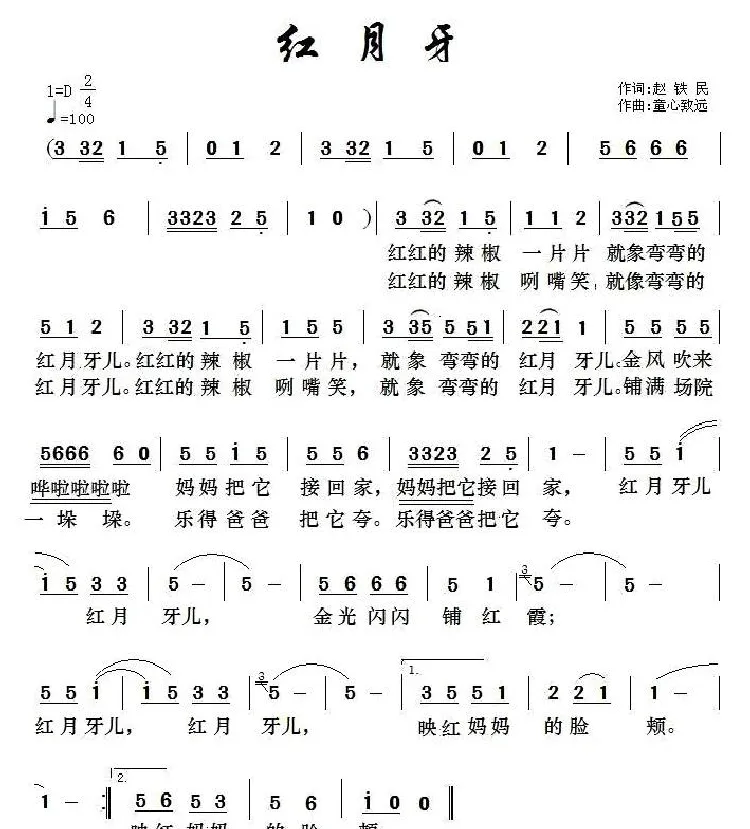 红月牙
1=D 2/4
作词:赵铁民
♩=100
作曲:童心致远
(3 32 1 5 | 0 1 2 | 3 32 1 5 | 0 1 2 | 5 6 6 6 |
i 5 6 | 3323 2 5 | 1 0 ) | 3 32 1 5 | 1 1 2 | 332 1 5 5 |
红红的辣椒 一片片 就象弯弯的
红红的辣椒 咧嘴笑,就像弯弯的
5 1 2 | 3 32 1 5 | 1 5 5 | 3 35 5 51 | 2 21 1 | 5 5 5 5 |
红月牙儿。红红的辣椒 一片片, 就象弯弯的 红月 牙儿。金风吹来
红月牙儿。红红的辣椒 咧嘴笑, 就象弯弯的 红月 牙儿。铺满场院
5666 6 0 | 5 5 i 5 | 5 5 6 | 3323 2 5 | 1 - | 5 5 i |
哗啦啦啦啦 妈妈把它 接回家, 妈妈把它接回 家, 红月牙儿
一垛 垛。 乐得爸爸 把它夸。乐得爸爸把它 夸。
i 5 3 3 | 5 - | 5 - | 5 6 6 6 | 5 1 | 3 5 - | 5 - |
红月 牙儿, 金光闪闪 铺红霞;
5 5 i | i 5 3 3 | 3 5 - | 5 - | 1. 3 5 5 1 | 2 2 1 | 1 - |
红月牙儿, 红月 牙儿, 映红妈妈 的脸 颊。
1 - :| 2. 5 6 5 3 | 5 6 | i 0 0 ‖
映红妈妈 的脸 颊